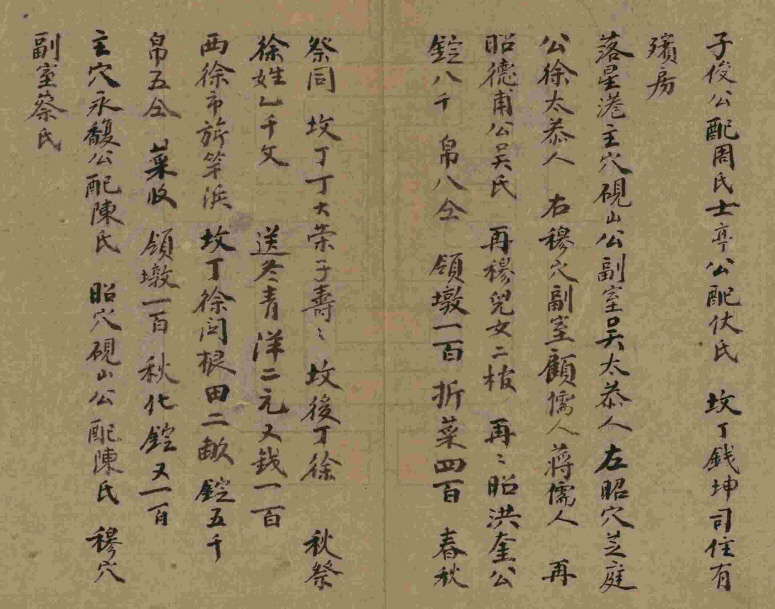 子俊公配周氏 士亭公配伏氏 坟丁錢坤司住有
殯房
落星港主穴硯山公副室吴太恭人 左昭穴芝庭
公徐太恭人 右穆穴副室顧孺人蔣孺人 再
昭德甫公吴氏 再穆兒女二柩 再〻昭洪奎公
錠八千 帛八仝 領墩一百 折菜四百 春秋
祭同 坟丁丁大荣子壽〻 坟後丁徐 秋祭
徐姓乙千文 送冬青洋二元又錢一百
西徐市斿竿浜 坟丁徐闰根田二畝 錠五千
帛五仝 菜收 領墩一百 秋化錠又一百
主穴永馥公配陳氏 昭穴硯山公配陳氏 穆穴
副室蔡氏